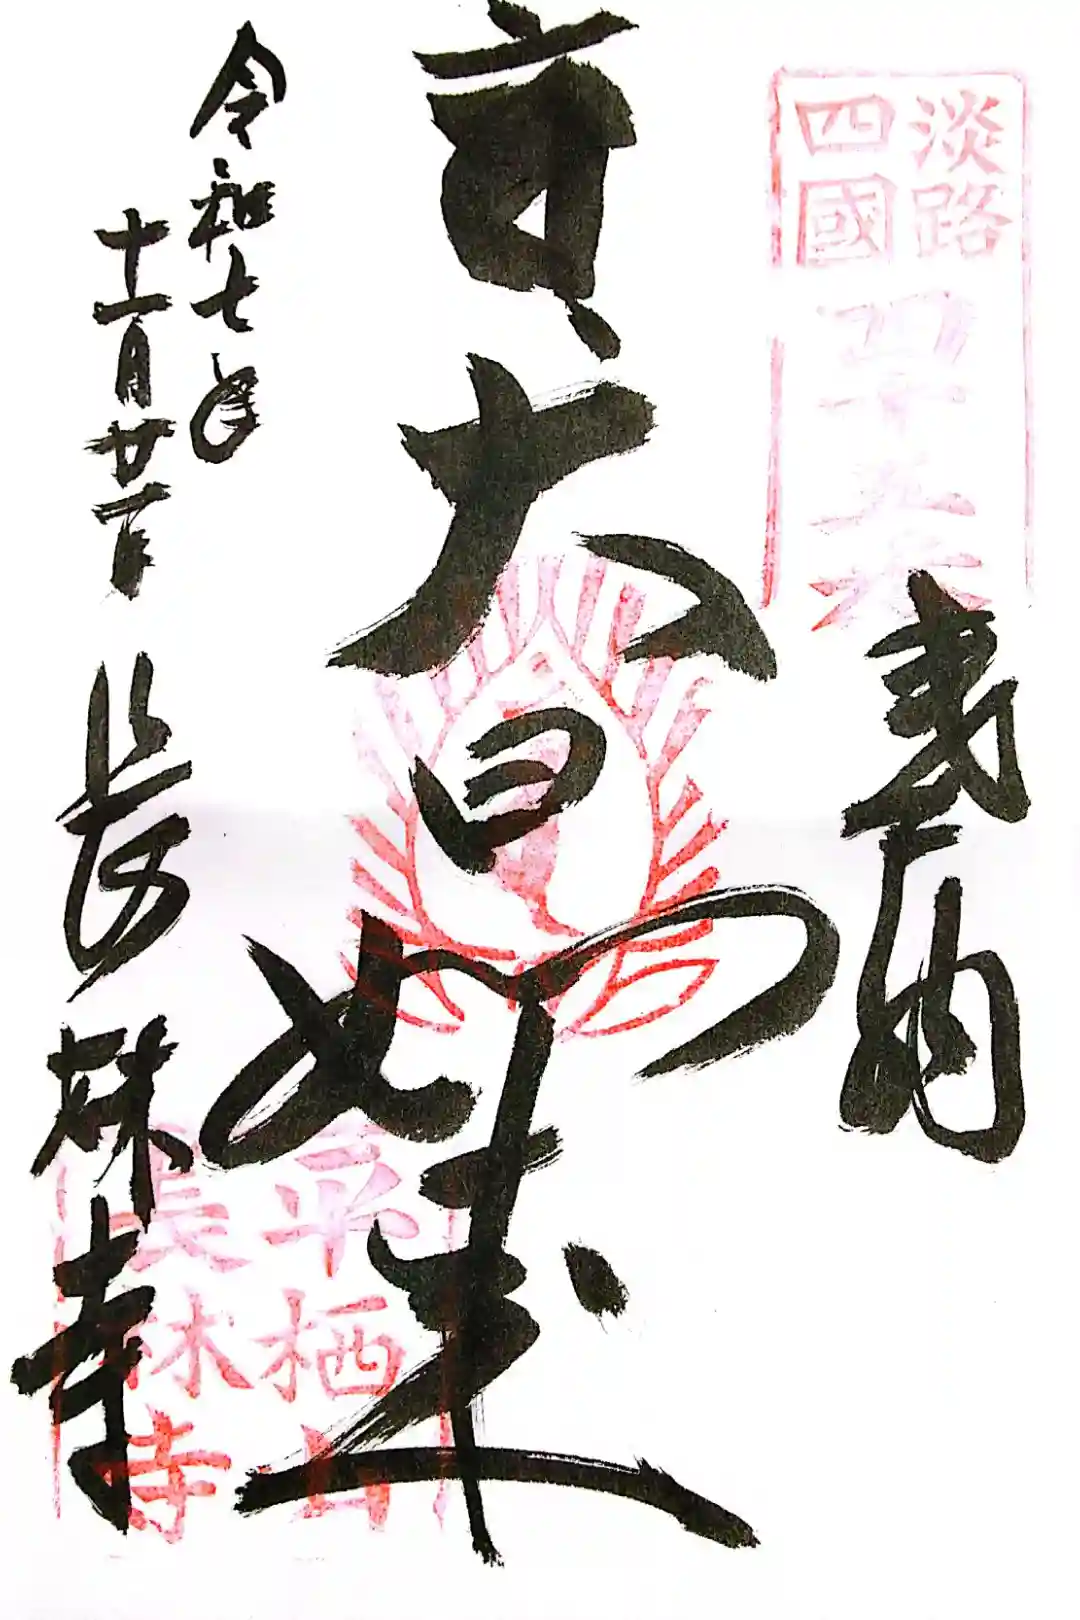 淡路
四國
四十五
奉納
大日如来
令和七年
十一月廿一日
長林寺
平栖山
長林寺